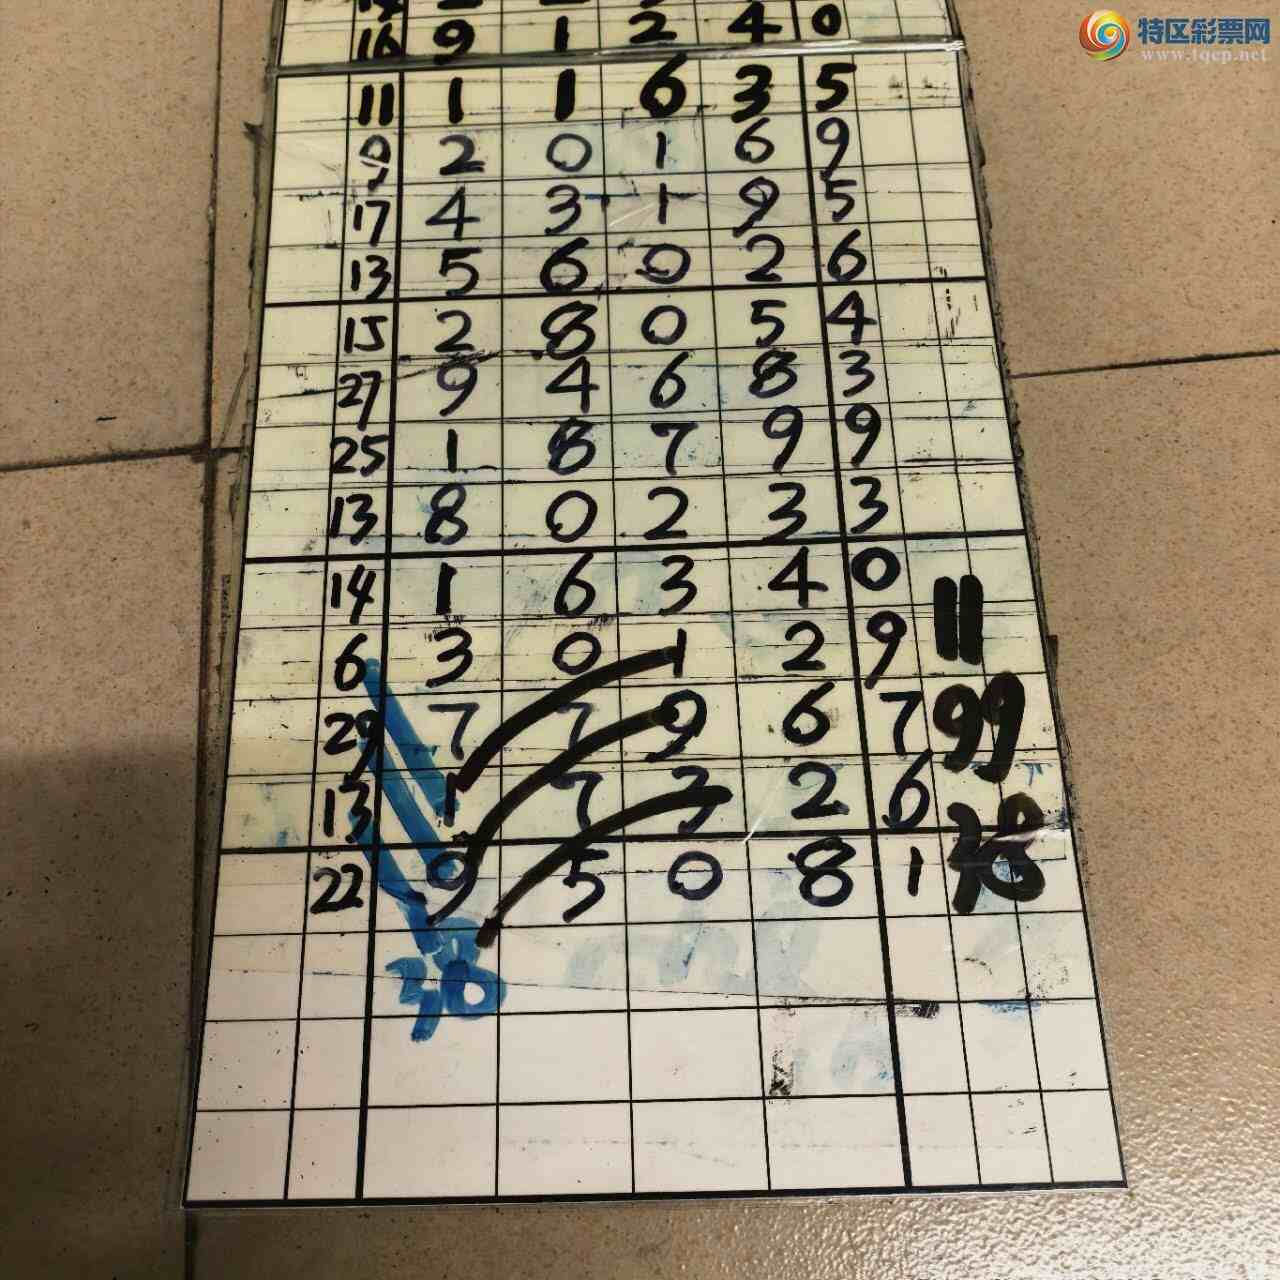 特区彩票网
www.tqcp.net
16 9 1 2 4 0
11 1 1 6 3 5
9 2 0 1 6 9
17 4 3 1 9 5
13 5 6 0 2 6
15 2 8 0 5 4
27 9 4 6 8 3
25 1 8 7 9 9
13 8 0 2 3 3
14 1 6 3 4 0
6 3 0 1 2 9 11
29 7 7 9 6 7 99
13 1 7 3 2 6
22 9 5 0 8 1 38
38